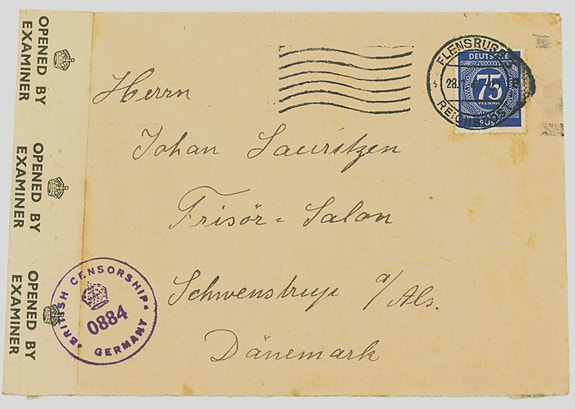 OPENED BY
EXAMINER
OPENED BY
EXAMINER
OPENED BY
EXAMINER
FLENSBURG
28.
DEUTSCHE
75
PFENNIG
POST
Herrn
Johan Lauritzen
Frisör-Salon
Schwenstrup a/Als.
Dänemark
BRITISH CENSORSHIP
0884
GERMANY